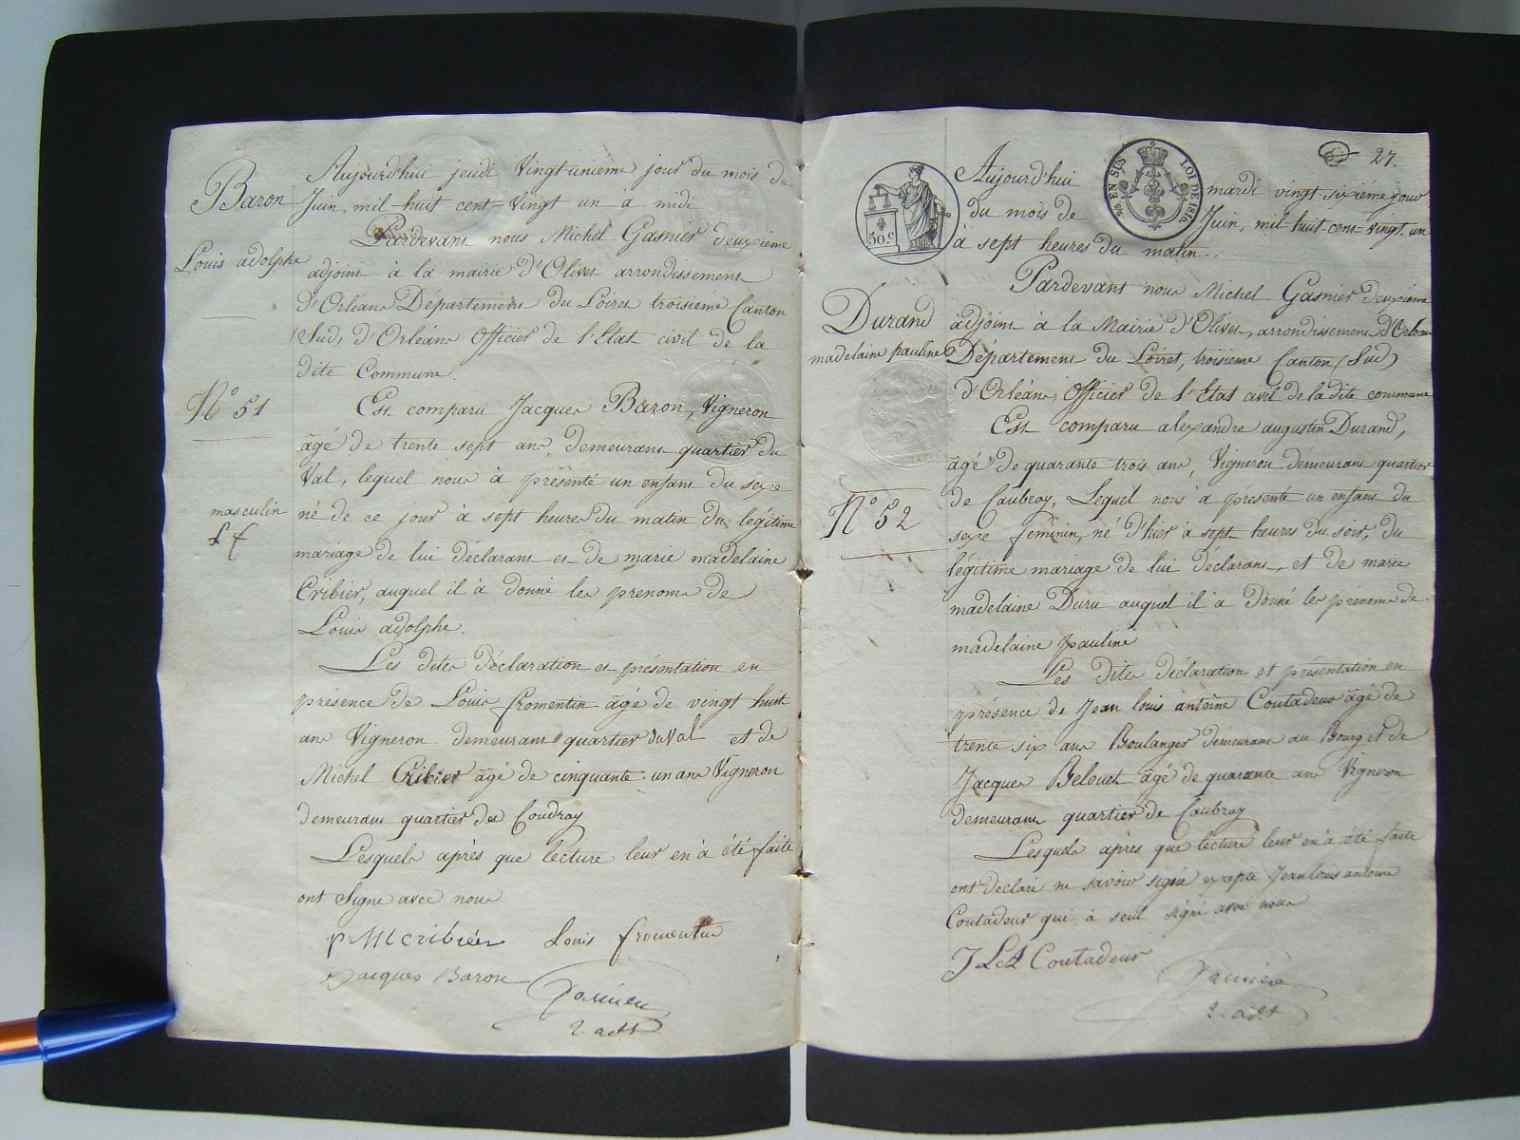 Baron
Louis adolphe
N° 51
masculin
Aujourd'hui jeudi Vingt-unieme jour du mois de
Juin, mil huit cent Vingt un à midi
Pardevant nous Michel Gasnier deuxième
adjoint à la mairie d'Olivet arrondissement
d'Orléans Département du Loiret troisieme Canton
Sud, d'Orléans Officier de l'Etat civil de la
dite Commune.
Est comparu Jacques Baron, Vigneron
âgé de trente sept ans, demeurant quartier du
Val, lequel nous à présenté un enfant du sexe
né de ce jour à sept heures du matin du légitime
mariage de lui déclarant et de marie madelaine
Cribier, auquel il à donné les prenoms de
Louis adolphe.
Les dites déclaration et présentation en
présence de Louis fromentin âgé de vingt huit
ans Vigneron demeurant quartier du Val et de
Michel Cribier âgé de cinquante un ans Vigneron
demeurant quartier du Coudray
Lesquels après que lecture leur en à été faite
ont Signé avec nous
Mcribier Louis fromentin
Jacques Baron
Gasnier
2. adt
27.
50 c
EN SUS LOI DE 1816
Durand
madelaine pauline
N° 52
Aujourd'hui mardi vingt sixième jour
du mois de Juin, mil huit cent vingt un
à sept heures du matin.
Pardevant nous Michel Gasnier deuxieme
adjoint à la Mairie d'Olivet, arrondissement d'Orléans
Département du Loiret, troisieme Canton (Sud)
d'Orléans, Officier de l'Etat civil de la dite commune
Est comparu alexandre augustin Durand,
âgé de quarante trois ans, Vigneron demeurant quartier
de Caubray, Lequel nous à présenté un enfant du
sexe feminin, né d'hier à sept heures du soir, du
légitime mariage de lui déclarant, et de marie
madelaine Duru auquel il à donné les prenoms de
madelaine pauline
Les dites déclaration et présentation en
présence de Jean louis antoine Coutadeur âgé de
trente six ans Boulanger demeurant au Bourg et de
Jacques Belouet âgé de quarante ans Vigneron
demeurant quartier de Caubray
Lesquels après que lecture leur en à été faite
ont declaré ne savoir signer excepté Jean louis antoine
Coutadeur qui à seul signé avec nous
J L A Coutadeur
Gasnier
2. adt